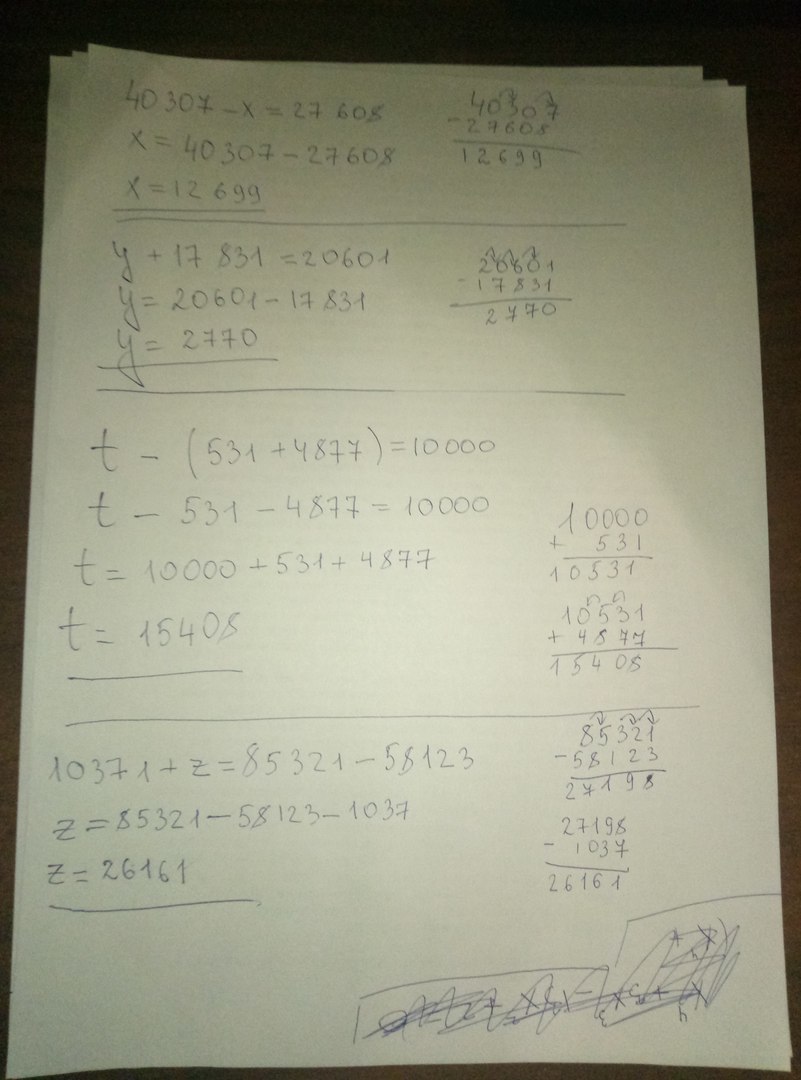 40307 - x = 27 608
x = 40307 - 27608
x = 12 699
40307
- 27608
12699
y + 17 831 = 20601
y = 20601 - 17 831
y = 2770
20601
- 17831
2770
t - (531 + 4877) = 10000
t - 531 - 4877 = 10000
t = 10000 + 531 + 4877
t = 15408
10000
+ 531
10531
10531
+ 4877
15408
10371 + z = 85321 - 58123
z = 85321 - 58123 - 1037
z = 26161
85321
- 58123
27198
27198
- 1037
26161